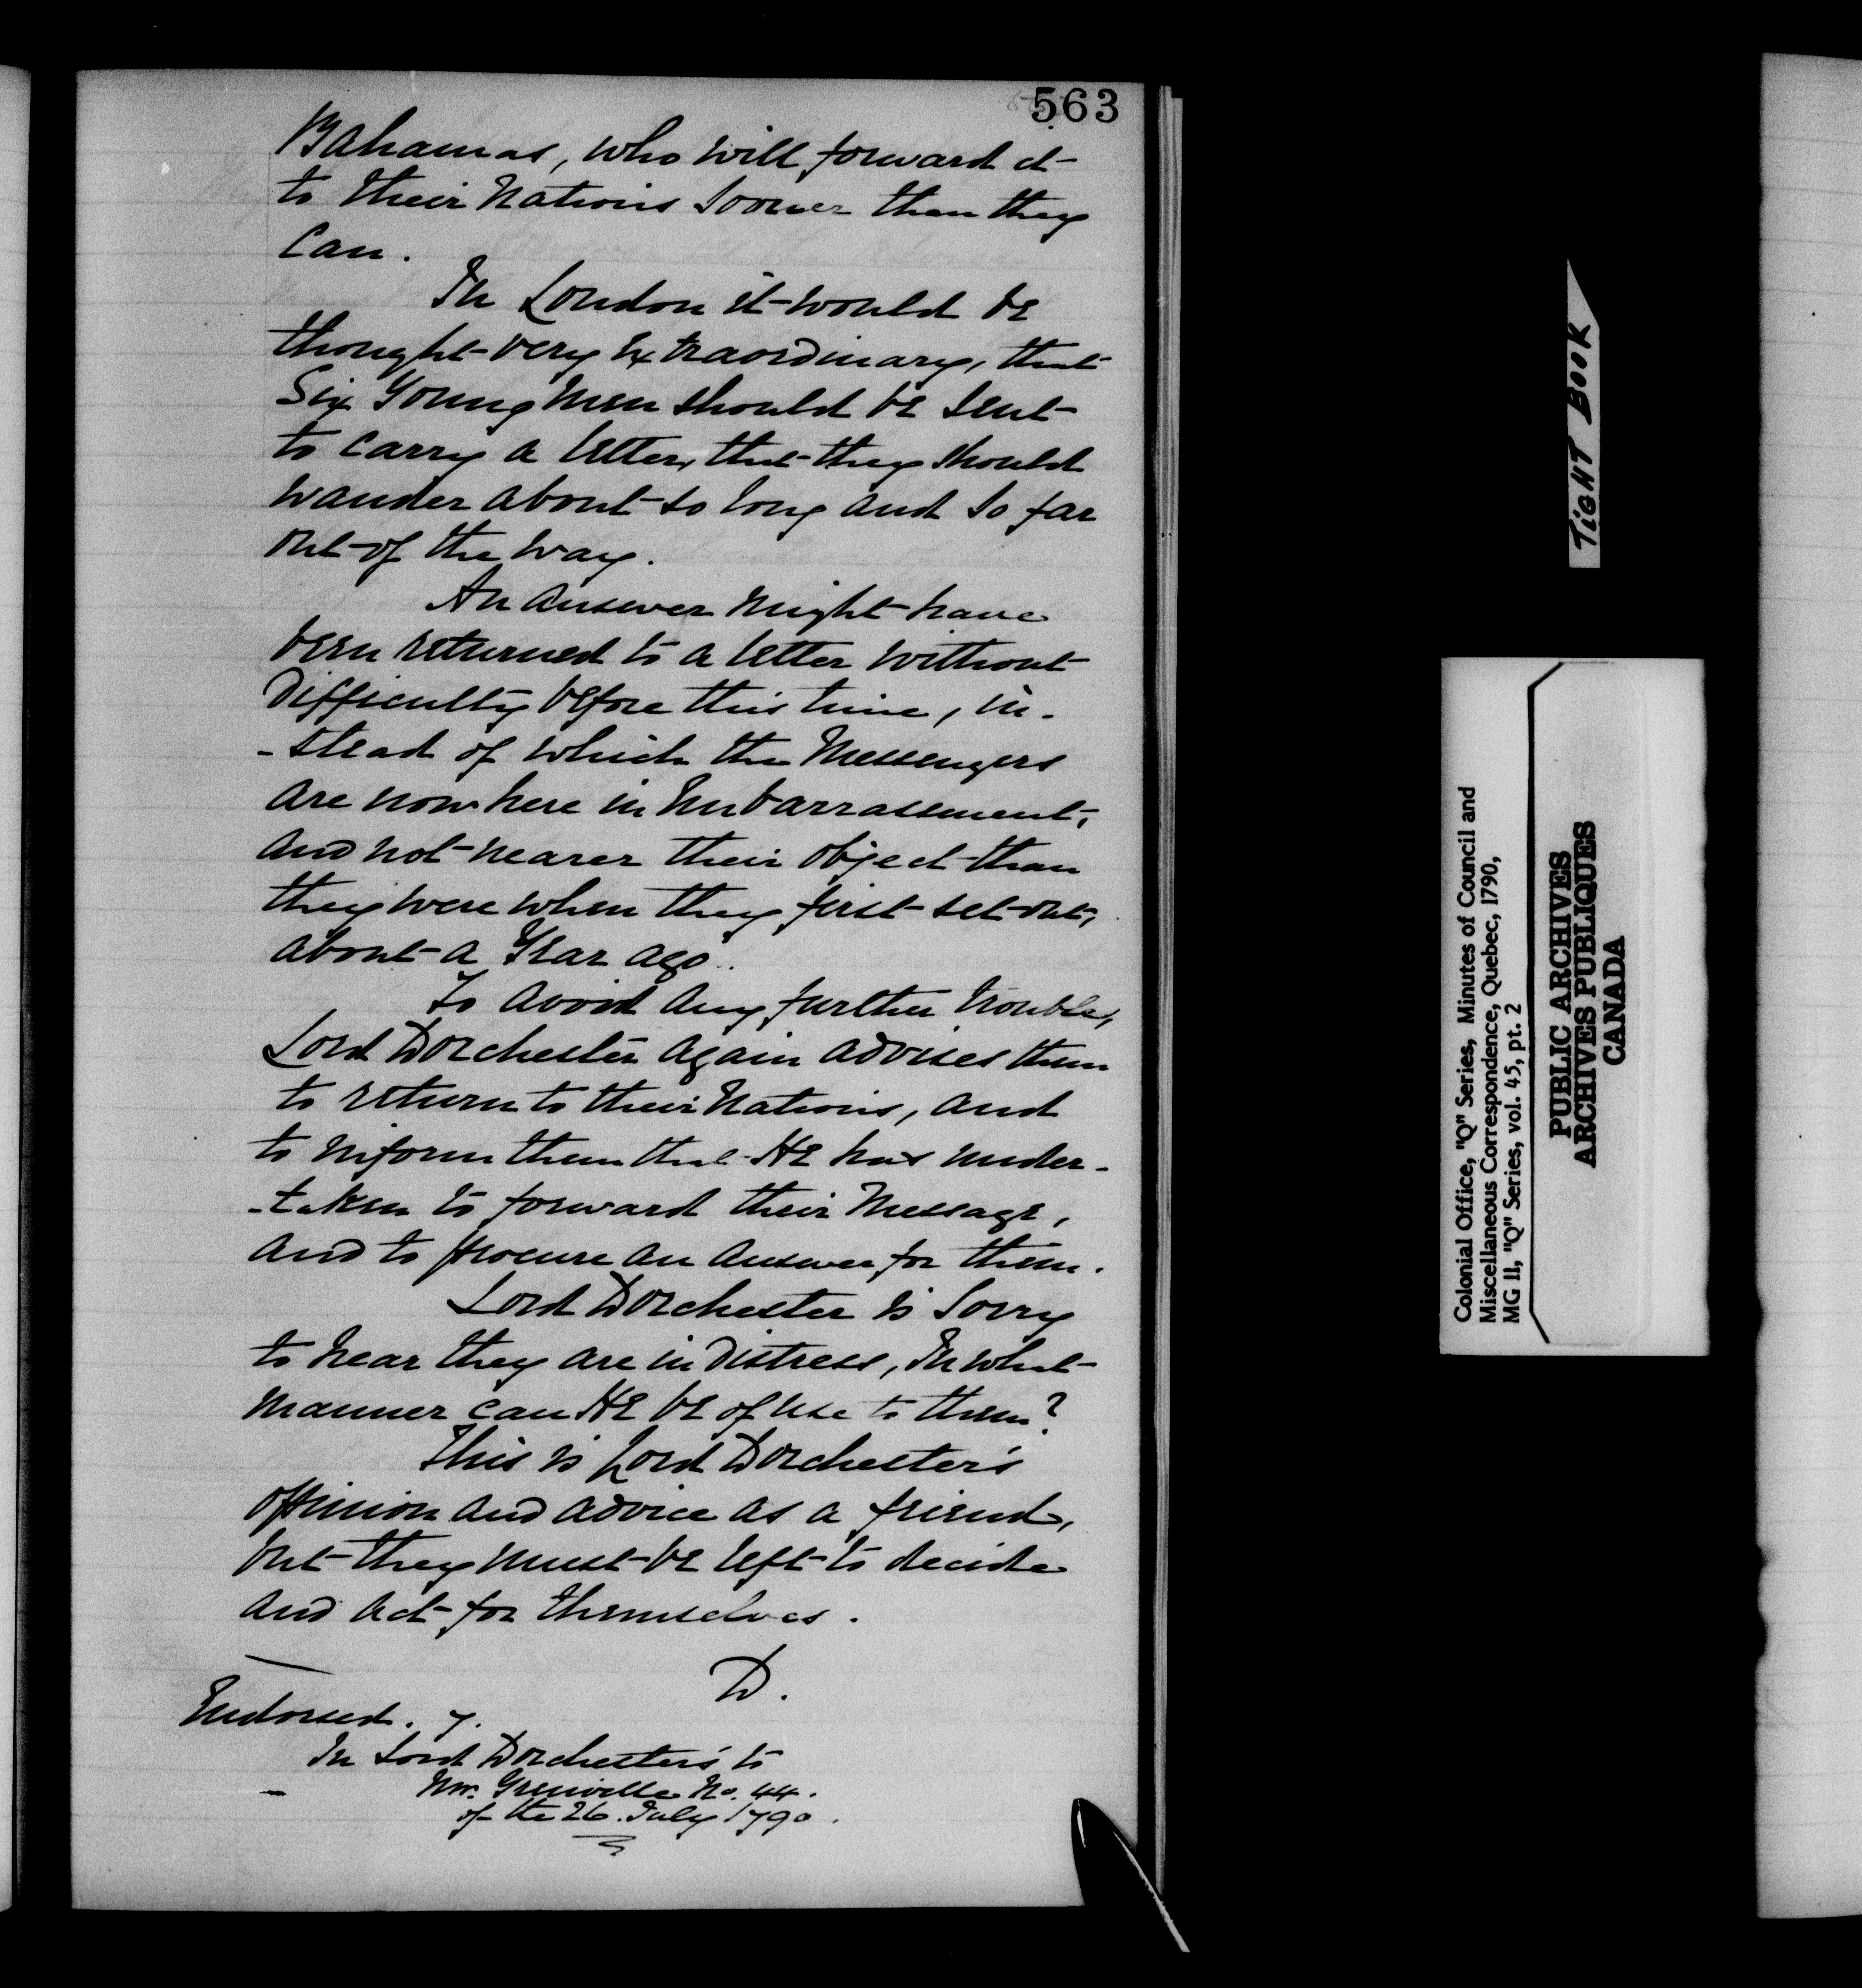 563
Bahamas, who will forward it
to their Nations sooner than they
can.
In London it would be
thought very extraordinary, that
Six Young Men should be sent
to carry a letter, that they should
wander about so long and so far
out of the way.
An answer might have
been returned to a letter without
difficulty before this time, in-
-stead of which the Messengers
are now here in Embarrassment,
and not nearer their object than
they were when they first set out,
about a Year ago.
To avoid any further trouble,
Lord Dorchester again advises them
to return to their Nations, and
to inform them that He has under-
-taken to forward their Message,
and to procure an answer for them.
Lord Dorchester is sorry
to hear they are in distress, In what
manner can He be of use to them?
This is Lord Dorchester's
opinion and advice as a friend,
but they must be left to decide
and act for themselves.
D.
Endorsed. 7.
In Lord Dorchester's to
Mr. Grenville No. 44.
of the 26. July 1790.
TIGHT BOOK
Colonial Office, "Q" Series, Minutes of Council and
Miscellaneous Correspondence, Quebec, 1790,
MG 11, "Q" Series, vol. 45, pt. 2
PUBLIC ARCHIVES
ARCHIVES PUBLIQUES
CANADA